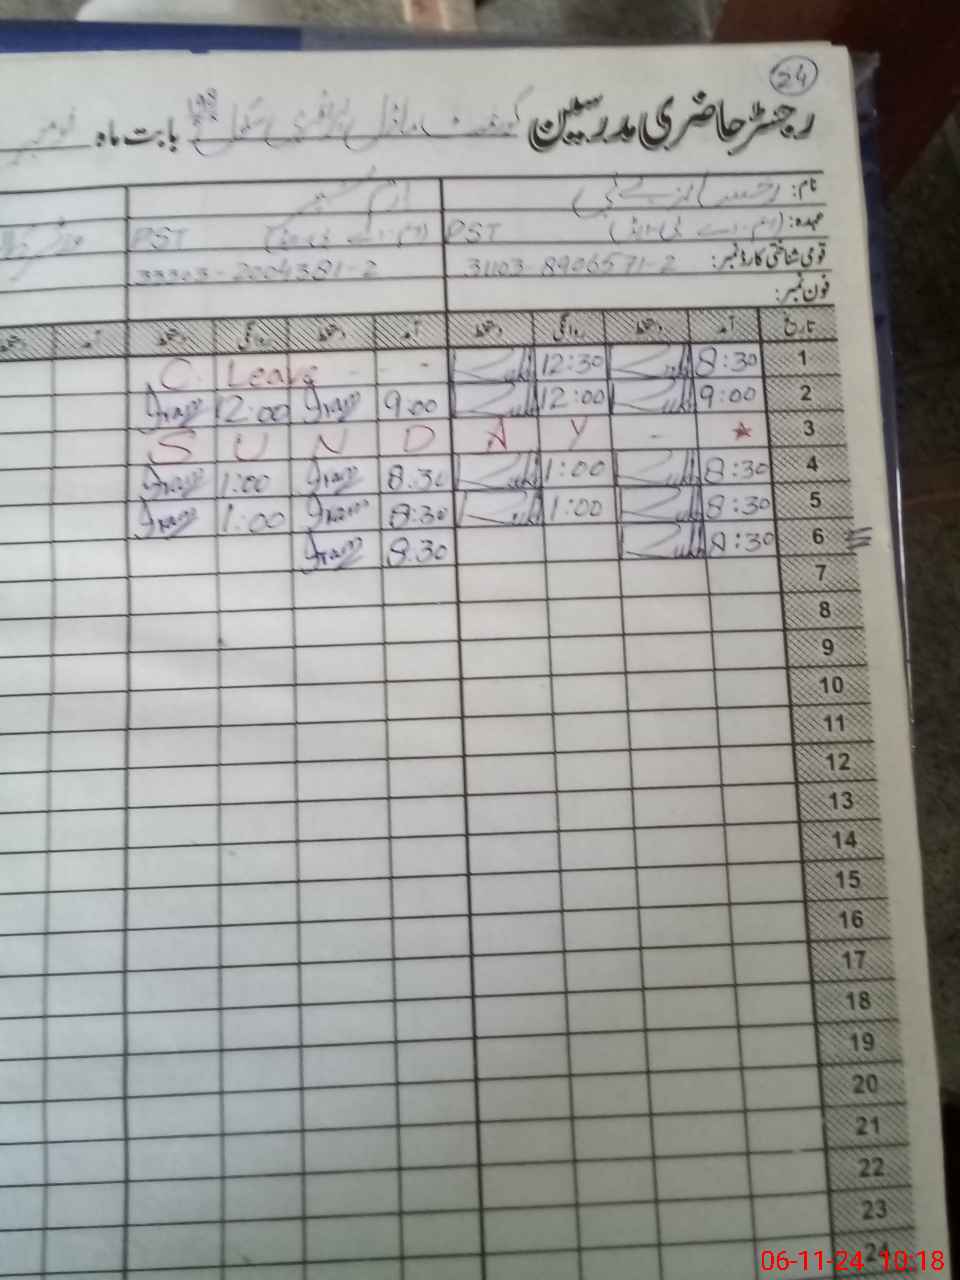 24
رجسٹر حاضری مدرسین گورنمنٹ ماڈل پرائمری سکول بابت ماہ نومبر
نام:
عہدہ: (ایم۔اے بی۔ایڈ) PST (ایم۔اے بی۔ایڈ) PST
قومی شناختی کارڈ نمبر: 31103-8906571-2 33303-2004381-2
فون نمبر:
تاریخ آمد دستخط روانگی دستخط آمد دستخط روانگی دستخط آمد دستخط
1 8:30 12:30 C. Leave - - -
2 9:00 12:00 9:00 Iram 12:00 Iram
3 SUNDAY -
4 8:30 1:00 8:30 Iram 1:00 Iram
5 8:30 1:00 8:30 Iram 1:00 Iram
6 8:30 8:30 Iram
7
8
9
10
11
12
13
14
15
16
17
18
19
20
21
22
23
24
06-11-24 10:18